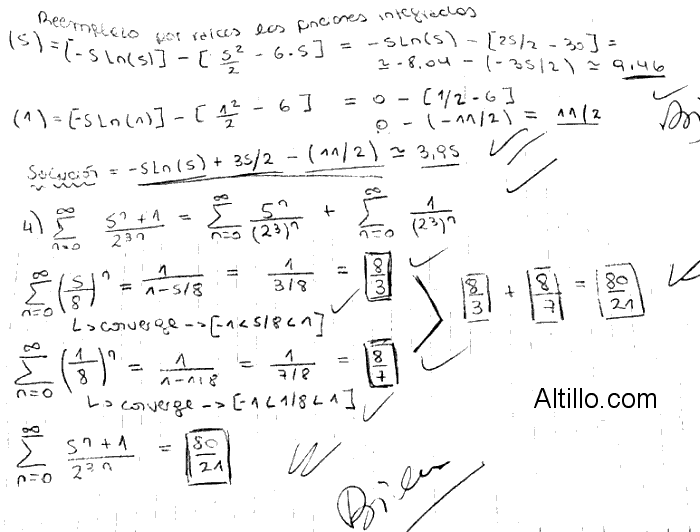 Reemplazo por raíces las funciones integradas
(5) = [-5 ln(5)] - [5²/2 - 6·5] = -5 ln(5) - [25/2 - 30] =
≃ -8,04 - (-35/2) ≃ 9,46
(1) = [-5 ln(1)] - [1²/2 - 6] = 0 - [1/2 - 6]
0 - (-11/2) = 11/2
Solución = -5 ln(5) + 35/2 - (11/2) ≃ 3,95
4) ∞∑n=0 (5ⁿ + 1)/2³ⁿ = ∞∑n=0 5ⁿ/(2³)ⁿ + ∞∑n=0 1/(2³)ⁿ
∞∑n=0 (5/8)ⁿ = 1/(1-5/8) = 1/(3/8) = 8/3
↳ converge → [-1 < 5/8 < 1]
8/3 + 8/7 = 80/21
∞∑n=0 (1/8)ⁿ = 1/(1-1/8) = 1/(7/8) = 8/7
↳ converge → [-1 < 1/8 < 1]
Altillo.com
∞∑n=0 (5ⁿ + 1)/2³ⁿ = 80/21